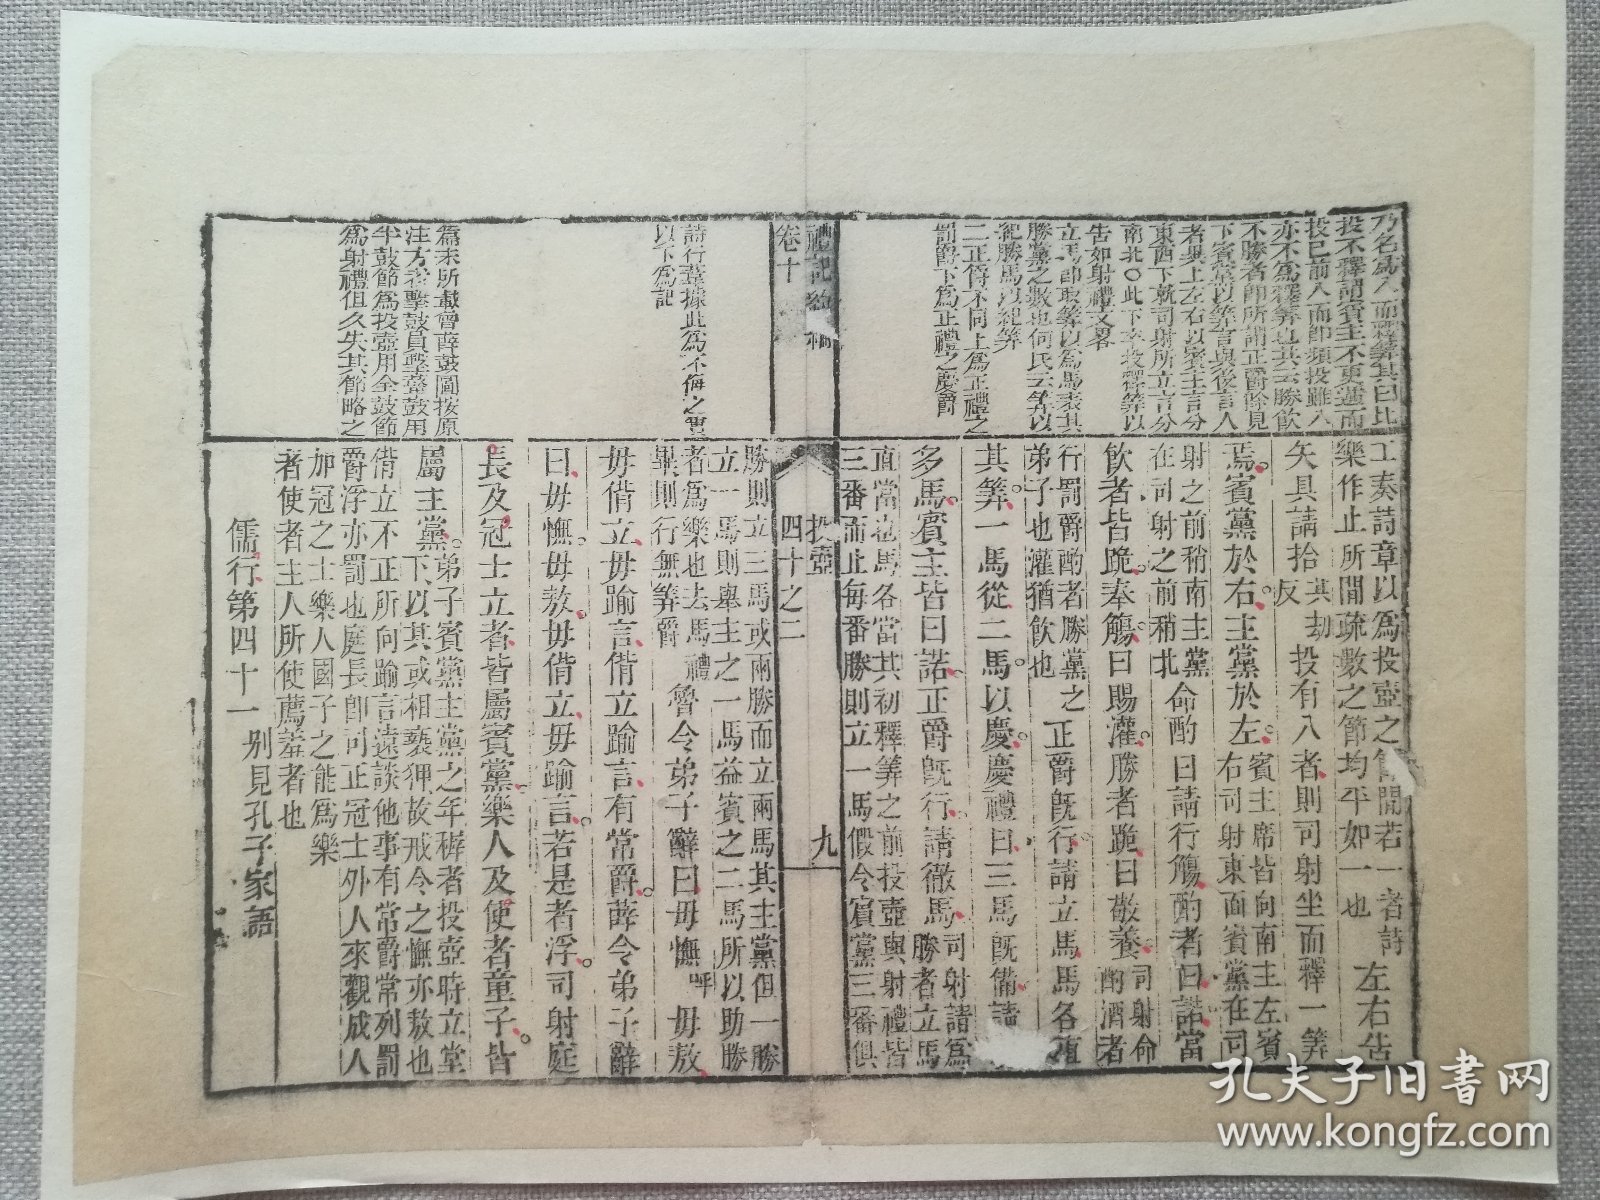 乃名爲入而釋筭其曰比
投不釋謂賓主不更遞而
投已前人而卽頻投雖入
亦不爲釋筭也其云勝飮
不勝者卽所謂正爵餘見
下賓黨以筭言與後言人
者異上左右以賓主言分
東西下就司射所立言分
南北〇此下卒投釋筭以
告如射禮文畧
立馬卽取筭以爲馬表其
勝黨之數也何氏云筭以
紀勝馬以紀筭
二正得不同上爲正禮之
罰爵下爲正禮之慶爵
工奏詩章以爲投壺之節閒若一者詩
樂作止所間疏數之節均平如一也 左右告
矢具請拾其劫反投有入者則司射坐而釋一筭
焉賓黨於右主黨於左賓主席皆向南主左賓
右司射東面賓黨在司
射之前稍南主黨
在司射之前稍北命酌曰請行觴酌者曰諾當
飮者皆跪奉觴曰賜灌勝者跪曰敬養司射命
酌酒者
行罰爵酌者勝黨之
弟子也灌猶飮也正爵旣行請立馬馬各直
其筭一馬從二馬以慶慶禮曰三馬旣備請
多馬賓主皆曰諾正爵旣行請徹馬司射請爲
勝者立馬
直當也馬各當其初釋筭之前投壺與射禮皆
三番而止每番勝則立一馬假令賓黨三番俱
禮記
卷十
投壺
四十之二
九
詩行葦據此爲不侮之
以下爲記
篇末所載魯薛鼓圖按原
注方者擊鼓員擊鼙鼓用
半鼓節爲投壺用全鼓節
爲射禮但久失其節略之
勝則立三馬或兩勝而立兩馬其主黨但一勝
立一馬則舉主之一馬益賓之二馬所以助勝
者爲樂也去馬禮
畢則行無筭爵魯令弟子辭曰毋憮呼毋敖
毋偝立毋踰言偝立踰言有常爵薛令弟子辭
曰毋憮毋敖毋偝立毋踰言若是者浮司射庭
長及冠士立者皆屬賓黨樂人及使者童子皆
屬主黨弟子賓黨主黨之年穉者投壺時立堂
下以其或相褻狎故戒令之憮亦敖也
偝立不正所向踰言遠談他事有常爵常列罰
爵浮亦罰也庭長卽司正冠士外人來觀成人
加冠之士樂人國子之能爲樂
者使者主人所使薦羞者也
儒行第四十一別見孔子家語
孔夫子旧书网
www.kongfz.com